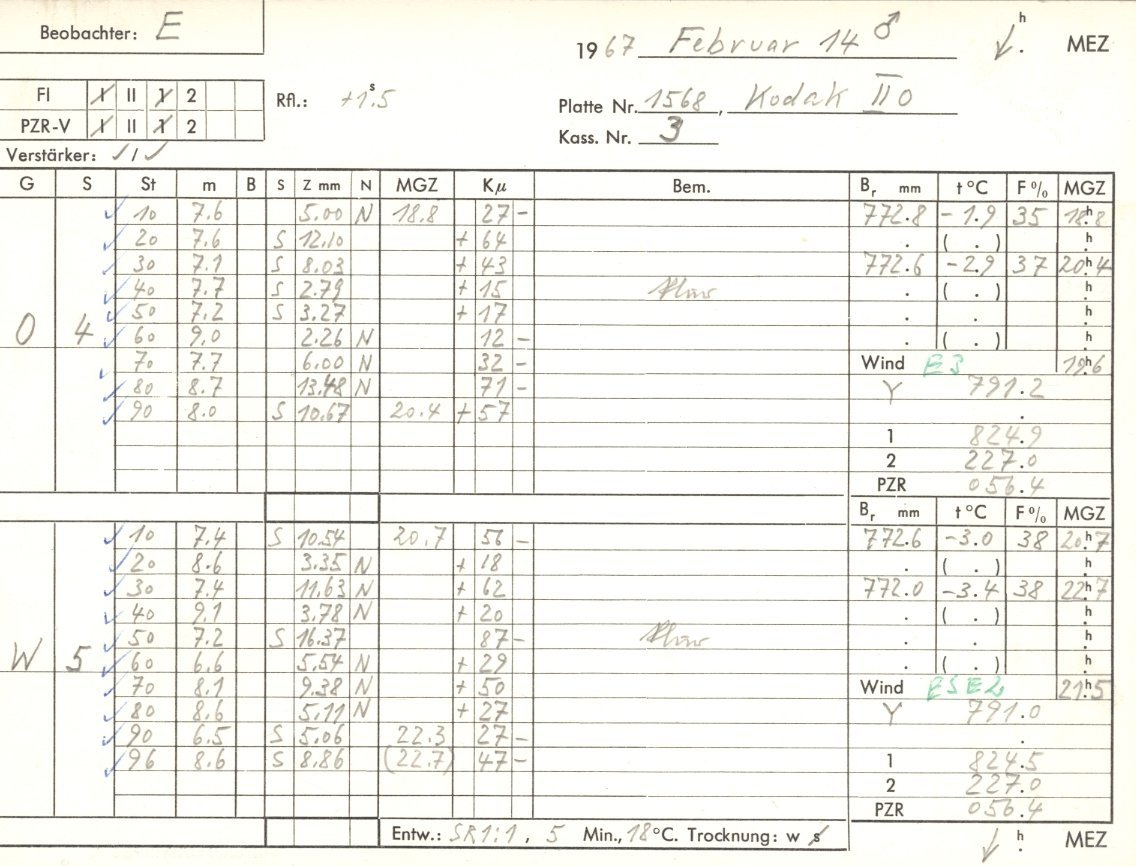 Beobachter: E
1967 Februar 14 ♂ h . MEZ
FI I II 1 2
PZR-V I II 1 2
Rfl.: +1.ˢ5
Platte Nr. 1568, Kodak IIo
Kass. Nr. 3
Verstärker: ✓/✓
G S St m B S Z mm N MGZ Kμ Bem. Br mm t°C F% MGZ
10 7.6 5.00 N 18.8 27 - 772.8 -1.9 35 18ʰ.8
20 7.6 S 12.10 + 64 . ( . ) h .
30 7.1 S 8.03 + 43 772.6 -2.9 37 20ʰ.4
40 7.7 S 2.79 + 15 klar . ( . ) h .
50 7.2 S 3.27 + 17 . . h .
O 4 60 9.0 2.26 N 12 - . ( . ) h .
70 7.7 6.00 N 32 - Wind E3 19ʰ.6
80 8.7 13.48 N 71 - Y 791.2
90 8.0 S 10.67 20.4 + 57 .
1 824.9
2 227.0
PZR 056.4
Br mm t°C F% MGZ
10 7.4 S 10.54 20.7 56 - 772.6 -3.0 38 20ʰ.7
20 8.6 3.35 N + 18 . ( . ) h .
30 7.4 11.63 N + 62 772.0 -3.4 38 22ʰ.7
40 9.1 3.78 N + 20 . ( . ) h .
50 7.2 S 16.37 87 - klar . . h .
W 5 60 6.6 5.54 N + 29 . ( . ) h .
70 8.1 9.38 N + 50 Wind ESE2 21ʰ.5
80 8.6 5.11 N + 27 Y 791.0
90 6.5 S 5.06 22.3 27 - .
96 8.6 S 8.86 (22.7) 47 - 1 824.5
2 227.0
PZR 056.4
Entw.: SR1:1, 5 Min., 18°C. Trocknung: w s
h . MEZ